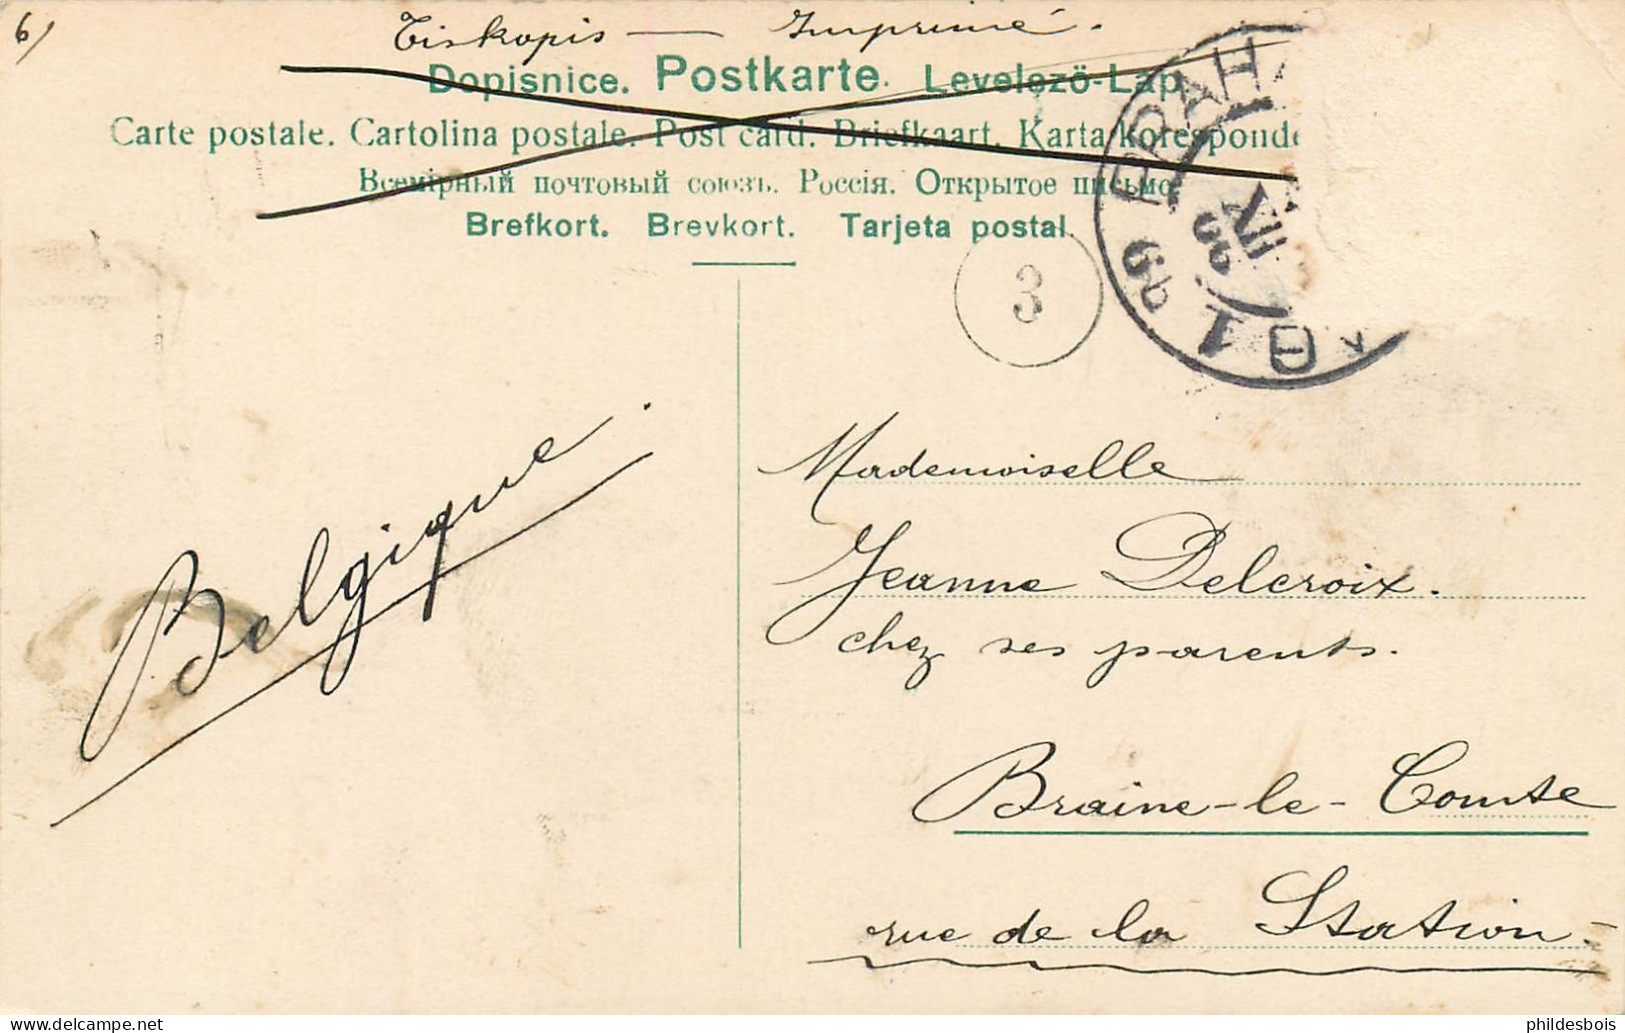 6/
Tiskopis — Imprimé.
Dopisnice. Postkarte. Levelezö-Lap.
Carte postale. Cartolina postale. Post card. Briefkaart. Karta koresponde
Всемірный почтовый союзъ. Россія. Открытое письмо.
Brefkort. Brevkort. Tarjeta postal.
XII
06
1
3
Belgique.
Mademoiselle
Jeanne Delcroix.
chez ses parents.
Braine-le-Comte
rue de la Station.
phildesbois